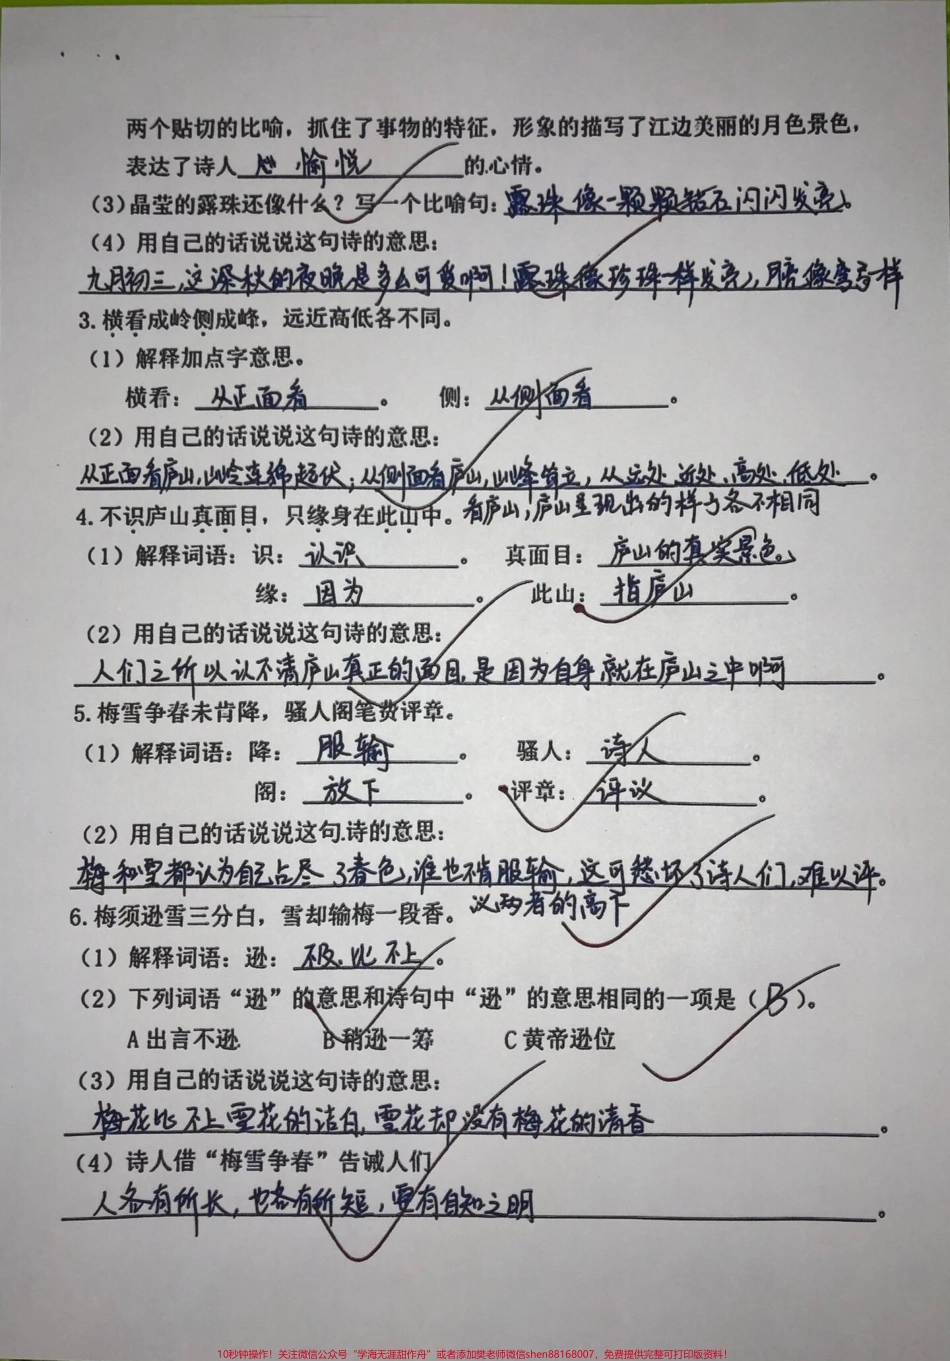 两个贴切的比喻，抓住了事物的特征，形象的描写了江边美丽的月色景色，
表达了诗人 愉悦 的心情。
(3)晶莹的露珠还像什么？写一个比喻句：露珠像一颗颗钻石闪闪发亮。
(4)用自己的话说说这句诗的意思：
九月初三，这深秋的夜晚是多么可爱啊！露珠像珍珠一样发亮，月像弯弓样
3.横看成岭侧成峰，远近高低各不同。
(1)解释加点字意思。
横看：从正面看。 侧：从侧面看。
(2)用自己的话说说这句诗的意思：
从正面看庐山，山岭连绵起伏；从侧面看庐山，山峰耸立，从远处、近处、高处、低处。
4.不识庐山真面目，只缘身在此山中。看庐山，庐山呈现出的样子各不相同
(1)解释词语：识：认识。 真面目：庐山的真实景色。
缘：因为。 此山：指庐山。
(2)用自己的话说说这句诗的意思：
人们之所以认不清庐山真正的面目，是因为自身就在庐山之中啊。
5.梅雪争春未肯降，骚人阁笔费评章。
(1)解释词语：降：服输。 骚人：诗人。
阁：放下。 评章：评议。
(2)用自己的话说说这句诗的意思：
梅和雪都认为自己占尽了春色，谁也不肯服输，这可愁坏了诗人们，难以评。
6.梅须逊雪三分白，雪却输梅一段香。议两者的高下
(1)解释词语：逊：不及，比不上。
(2)下列词语“逊”的意思和诗句中“逊”的意思相同的一项是（B）。
A出言不逊 B稍逊一筹 C黄帝逊位
(3)用自己的话说说这句诗的意思：
梅花比不上雪花的洁白，雪花却没有梅花的清香。
(4)诗人借“梅雪争春”告诫人们
人各有所长，也各有所短，要有自知之明。
10秒钟操作！关注微信公众号“学海无涯甜作舟”或者添加樊老师微信shen88168007，免费提供完整可打印版资料！